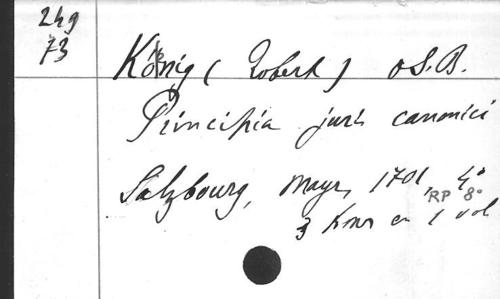 249
73
König (Robert) o.S.B.
Principia juris canonici
Salzbourg, Mayr, 1701, 4°
RP 8°
3 tomes en 1 vol